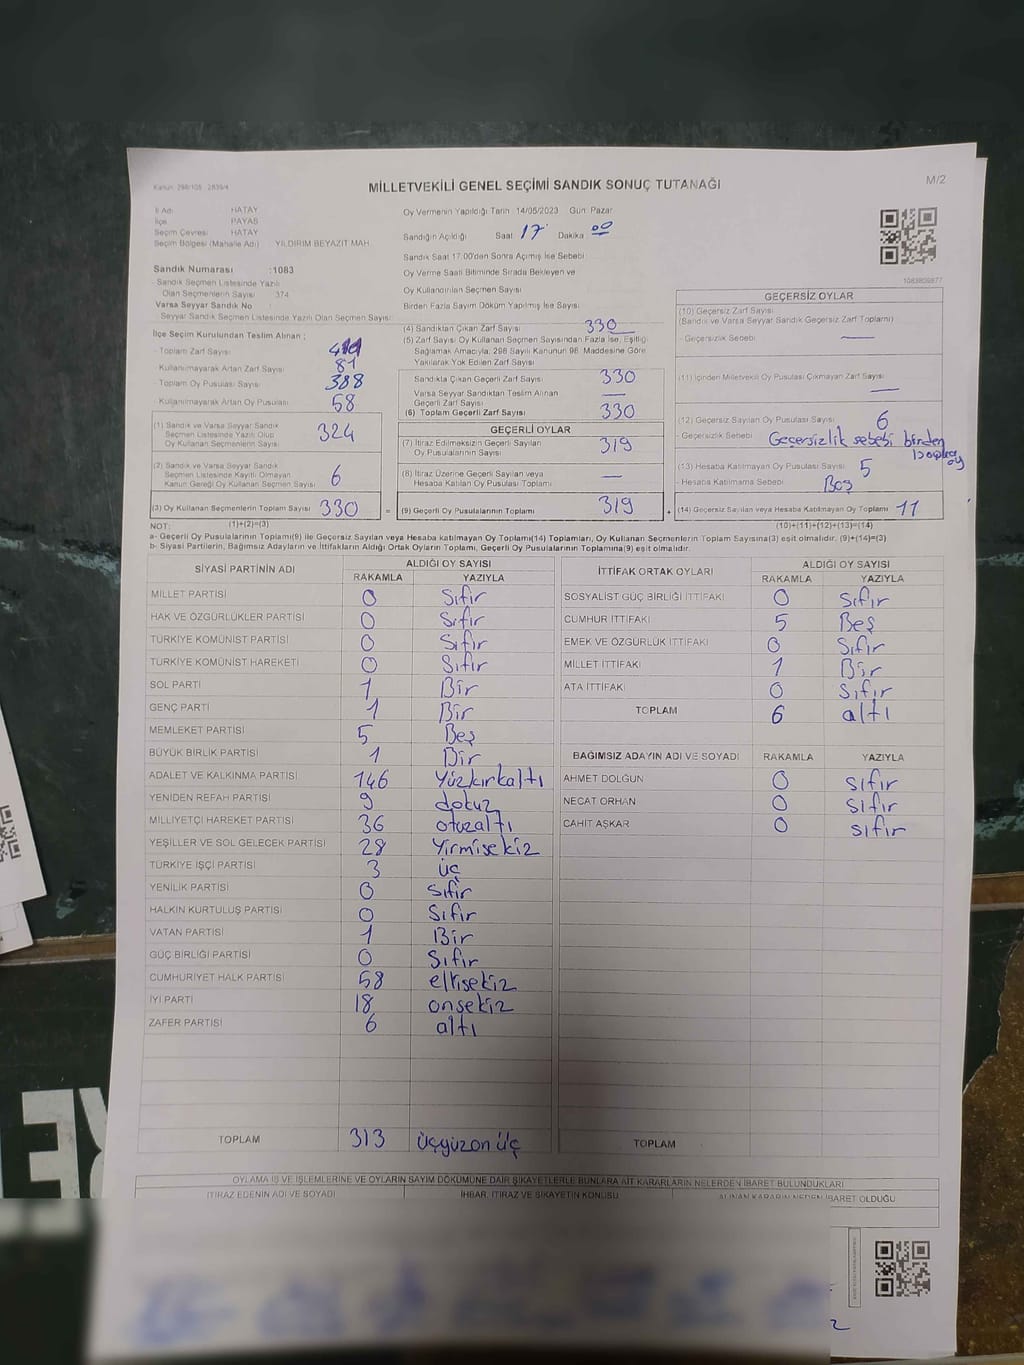 Kanun: 298/105 - 2839/4
MİLLETVEKİLİ GENEL SEÇİMİ SANDIK SONUÇ TUTANAĞI
M/2
İl Adı HATAY
İlçe PAYAS
Seçim Çevresi HATAY
Seçim Bölgesi (Mahalle Adı) YILDIRIM BEYAZIT MAH.
Sandık Numarası :1083
- Sandık Seçmen Listesinde Yazılı
Olan Seçmenlerin Sayısı 374
Varsa Seyyar Sandık No :
- Seyyar Sandık Seçmen Listesinde Yazılı Olan Seçmen Sayısı:
Oy Vermenin Yapıldığı Tarih 14/05/2023 Gün: Pazar
Sandığın Açıldığı Saat 17 Dakika 00
Sandık Saat 17:00'den Sonra Açılmış İse Sebebi
Oy Verme Saati Bitiminde Sırada Bekleyen ve
Oy Kullandırılan Seçmen Sayısı
Birden Fazla Sayım Döküm Yapılmış İse Sayısı
1083809877
İlçe Seçim Kurulundan Teslim Alınan ;
- Toplam Zarf Sayısı
- Kullanılmayarak Artan Zarf Sayısı 81
- Toplam Oy Pusulası Sayısı 388
- Kullanılmayarak Artan Oy Pusulası 58
(1) Sandık ve Varsa Seyyar Sandık
Seçmen Listesinde Yazılı Olup
Oy Kullanan Seçmenlerin Sayısı 324
(2) Sandık ve Varsa Seyyar Sandık
Seçmen Listesinde Kayıtlı Olmayan
Kanun Gereği Oy Kullanan Seçmen Sayısı 6
(3) Oy Kullanan Seçmenlerin Toplam Sayısı 330 =
(4) Sandıktan Çıkan Zarf Sayısı 330
(5) Zarf Sayısı Oy Kullanan Seçmen Sayısından Fazla İse, Eşitliği
Sağlamak Amacıyla; 298 Sayılı Kanunun 98. Maddesine Göre
Yakılarak Yok Edilen Zarf Sayısı
Sandıkta Çıkan Geçerli Zarf Sayısı 330
Varsa Seyyar Sandıktan Teslim Alınan
Geçerli Zarf Sayısı —
(6) Toplam Geçerli Zarf Sayısı 330
GEÇERLİ OYLAR
(7) İtiraz Edilmeksizin Geçerli Sayılan
Oy Pusulalarının Sayısı 319
(8) İtiraz Üzerine Geçerli Sayılan veya
Hesaba Katılan Oy Pusulası Toplamı —
(9) Geçerli Oy Pusulalarının Toplamı 319 +
GEÇERSİZ OYLAR
(10) Geçersiz Zarf Sayısı
(Sandık ve Varsa Seyyar Sandık Geçersiz Zarf Toplamı)
- Geçersizlik Sebebi —
(11) İçinden Milletvekili Oy Pusulası Çıkmayan Zarf Sayısı
—
(12) Geçersiz Sayılan Oy Pusulası Sayısı 6
- Geçersizlik Sebebi Geçersizlik sebebi birden
oy
(13) Hesaba Katılmayan Oy Pusulası Sayısı 5
- Hesaba Katılmama Sebebi Boş
(14) Geçersiz Sayılan veya Hesaba Katılmayan Oy Toplamı 11
NOT: (1)+(2)=(3) (10)+(11)+(12)+(13)=(14)
a- Geçerli Oy Pusulalarının Toplamı(9) ile Geçersiz Sayılan veya Hesaba katılmayan Oy Toplamı(14) Toplamları, Oy Kullanan Seçmenlerin Toplam Sayısına(3) eşit olmalıdır. (9)+(14)=(3)
b- Siyasi Partilerin, Bağımsız Adayların ve İttifakların Aldığı Ortak Oyların Toplamı, Geçerli Oy Pusulalarının Toplamına(9) eşit olmalıdır.
SİYASİ PARTİNİN ADI ALDIĞI OY SAYISI
RAKAMLA YAZIYLA
MİLLET PARTİSİ 0 Sıfır
HAK VE ÖZGÜRLÜKLER PARTİSİ 0 Sıfır
TÜRKİYE KOMÜNİST PARTİSİ 0 Sıfır
TÜRKİYE KOMÜNİST HAREKETİ 0 Sıfır
SOL PARTİ 1 Bir
GENÇ PARTİ 1 Bir
MEMLEKET PARTİSİ 5 Beş
BÜYÜK BİRLİK PARTİSİ 1 Bir
ADALET VE KALKINMA PARTİSİ 146 Yüzkırkaltı
YENİDEN REFAH PARTİSİ 9 dokuz
MİLLİYETÇİ HAREKET PARTİSİ 36 otuzaltı
YEŞİLLER VE SOL GELECEK PARTİSİ 28 Yirmisekiz
TÜRKİYE İŞÇİ PARTİSİ 3 üç
YENİLİK PARTİSİ 0 Sıfır
HALKIN KURTULUŞ PARTİSİ 0 Sıfır
VATAN PARTİSİ 1 Bir
GÜÇ BİRLİĞİ PARTİSİ 0 Sıfır
CUMHURİYET HALK PARTİSİ 58 ellisekiz
İYİ PARTİ 18 onsekiz
ZAFER PARTİSİ 6 altı
TOPLAM 313 üçyüzon üç
İTTİFAK ORTAK OYLARI ALDIĞI OY SAYISI
RAKAMLA YAZIYLA
SOSYALİST GÜÇ BİRLİĞİ İTTİFAKI 0 Sıfır
CUMHUR İTTİFAKI 5 Beş
EMEK VE ÖZGÜRLÜK İTTİFAKI 0 Sıfır
MİLLET İTTİFAKI 1 Bir
ATA İTTİFAKI 0 Sıfır
TOPLAM 6 altı
BAĞIMSIZ ADAYIN ADI VE SOYADI RAKAMLA YAZIYLA
AHMET DOLĞUN 0 sıfır
NECAT ORHAN 0 sıfır
CAHİT AŞKAR 0 sıfır
TOPLAM
OYLAMA İŞ VE İŞLEMLERİNE VE OYLARIN SAYIM DÖKÜMÜNE DAİR ŞİKAYETLERLE BUNLARA AİT KARARLARIN NELERDEN İBARET BULUNDUKLARI
İTİRAZ EDENİN ADI VE SOYADI İHBAR, İTİRAZ VE ŞİKAYETİN KONUSU ALINAN KARARIN NEDEN İBARET OLDUĞU